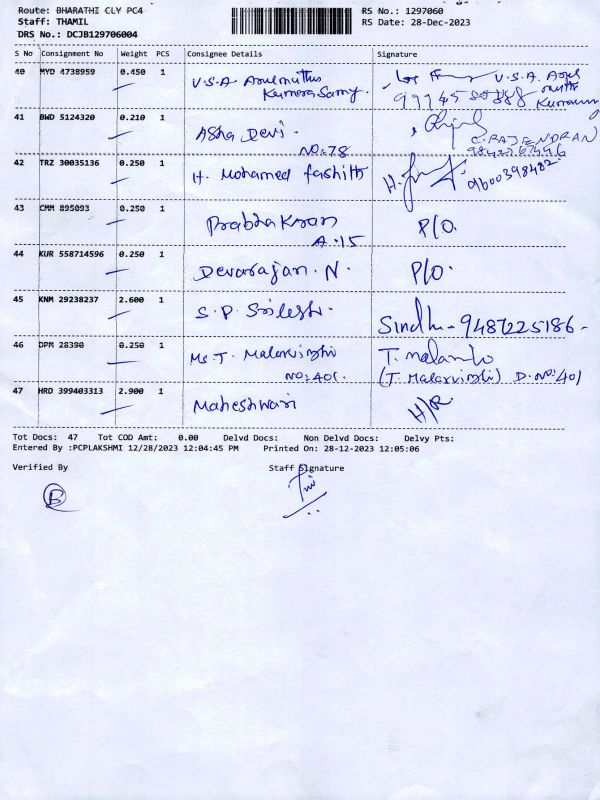 Route: BHARATHI CLY PC4 RS No.: 1297060
Staff: THAMIL RS Date: 28-Dec-2023
DRS No.: DCJB129706004
S No Consignment No Weight PCS Consignee Details Signature
40 MYD 4738959 0.450 1 V.S.A Arulmuthu V.S.A. Arul
Kumara Samy.
41 BWD 5124320 0.210 1 Asha Devi. C. RAJENDRAN)
NO: 78
42 TRZ 30035136 0.250 1 H. Mohamed fashith H. 9600398482
43 CMM 895093 0.250 1 Prabhakaran P/O.
A.15
44 KUR 558714596 0.250 1 Devarajan. N. P/O.
45 KNM 29238237 2.600 1 S. P. Srilesh. Sindhu - 9487225186 -
46 DPM 28390 0.250 1 Ms. T. Malarvizhi T.
NO: 401. (T. Malarvizhi) D. No: 401
47 HRD 399403313 2.900 1 Maheshwari H/R
Tot Docs: 47 Tot COD Amt: 0.00 Delvd Docs: Non Delvd Docs: Delvy Pts:
Entered By :PCPLAKSHMI 12/28/2023 12:04:45 PM Printed On: 28-12-2023 12:05:06
Verified By Staff Signature
B